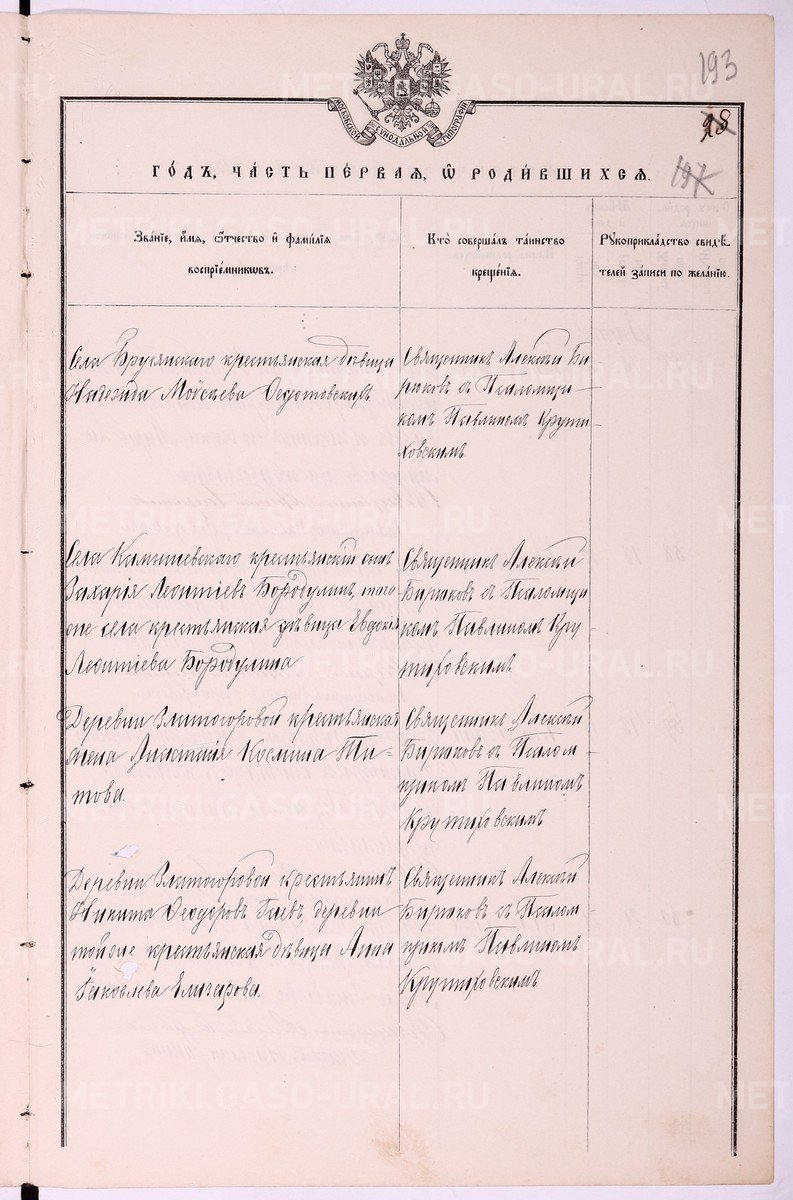 193
28
197
МОСКОВСКОЙ СѴНОДАЛЬНОЙ ТИПОГРАФІИ
ГО́ДЪ, ЧА́СТЬ ПЕ́РВАЯ, Ѽ РОДИ́ВШИХСЯ.
Зва́нїе, и҆́мя, ѻ҆́тчество и҆ фами́лїя
воспрїе́мниковъ.
Кто̀ соверша́лъ та́инство
креще́нїя.
Рꙋкоприкла́дство свидѣ́-
телей за́писи по жела́нїю.
Села Брусянскаго крестьянская дѣвица
Надежда Моисѣева Федотовскихъ
Священникъ Алексѣй Би-
рюковъ съ Псаломщи-
комъ Павлиномъ Крути-
ховскимъ.
Села Камышевскаго крестьянскій сынъ
Захарія Леонтіевъ Бородулинъ, того
же села крестьянская дѣвица Евдокія
Леонтіева Бородулина
Священникъ Алексѣй
Бирюковъ съ Псаломщи-
комъ Павлиномъ Кру-
тиховскимъ
Деревни Златогоровой крестьянская
жена Анастасія Космина Ти-
това.
Священникъ Алексѣй
Бирюковъ съ Псалом-
щикомъ Павлиномъ
Крутиховскимъ
Деревни Златогоровой крестьянинъ
Никита Феодоровъ Гаевъ, деревни
той же крестьянская дѣвица Анна
Іаковлева Елизарова.
Священникъ Алексѣй
Бирюковъ съ Псалом-
щикомъ Павлиномъ
Крутиховскимъ
METRIKI.GASO-URAL.RU